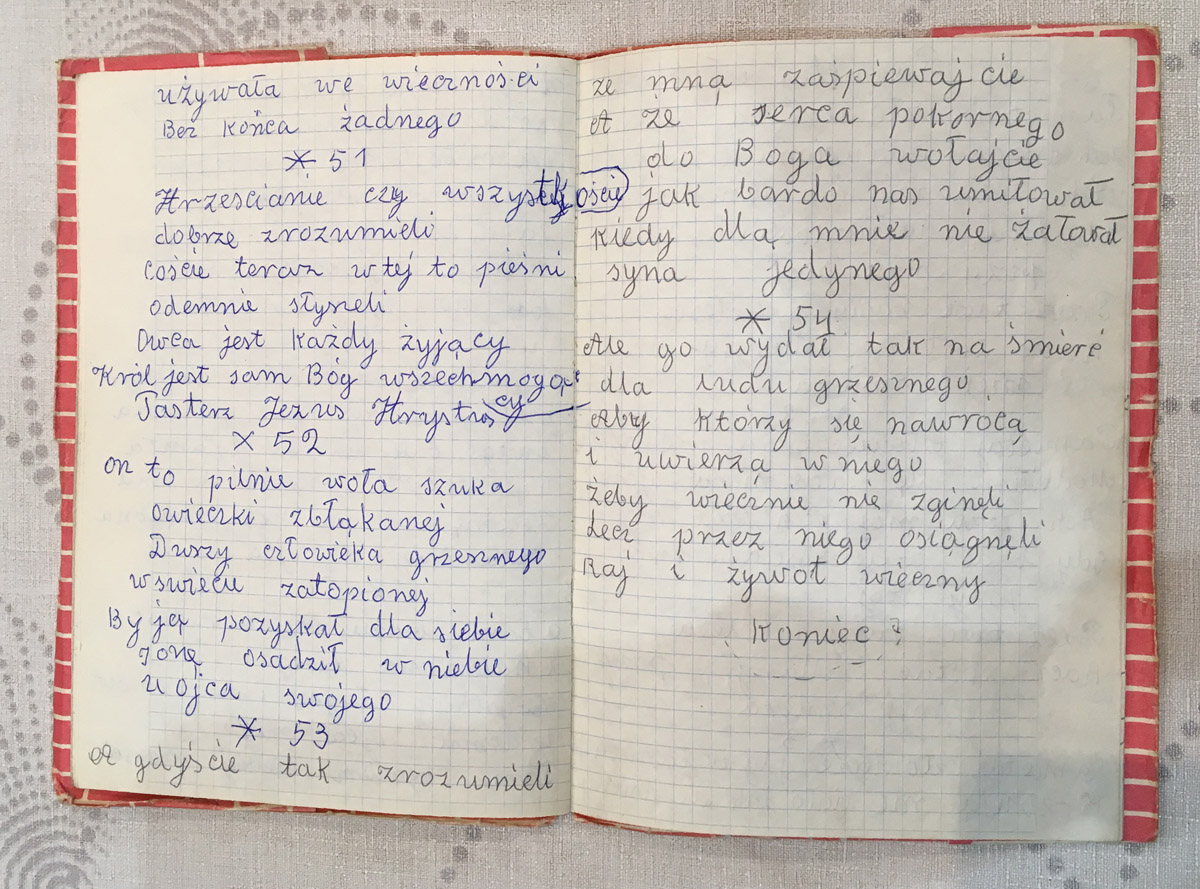 używała we wiecznos.ci
Bez końca żadnego
* 51
Hrzescianie czy wszystkościę
dobrze zrozumieli
coście teraz wtej to pieśni
odemnie słyszeli
Owca jest każdy żyjący
Król jest sam Bóg wszechmogący
Pasterz Jezus Hrystus
× 52
on to pilnie woła szuka
owieczki zbłąkanej
Duszy człowieka grzesznego
wswiecu zatopionej
By ję pozyskał dla siębie
Jonę osadził w niebie
u ojca swojego
* 53
A gdyście tak zrozumieli
ze mną zaśpiewajcie
A ze serca pokornego
do Boga wołajcie
jak bardo nas umiłował
kiedy dlą mnie nie żałował
syna jedynego
* 54
Ale go wydał tak na śmierć
dla ludu grzesznego
Aby którzy się nawrócą
i uwierzą w niego
żeby wiecznie nie zginęli
Lecz przez niego osiągnęli
Raj i żywot wieczny
Koniec ?